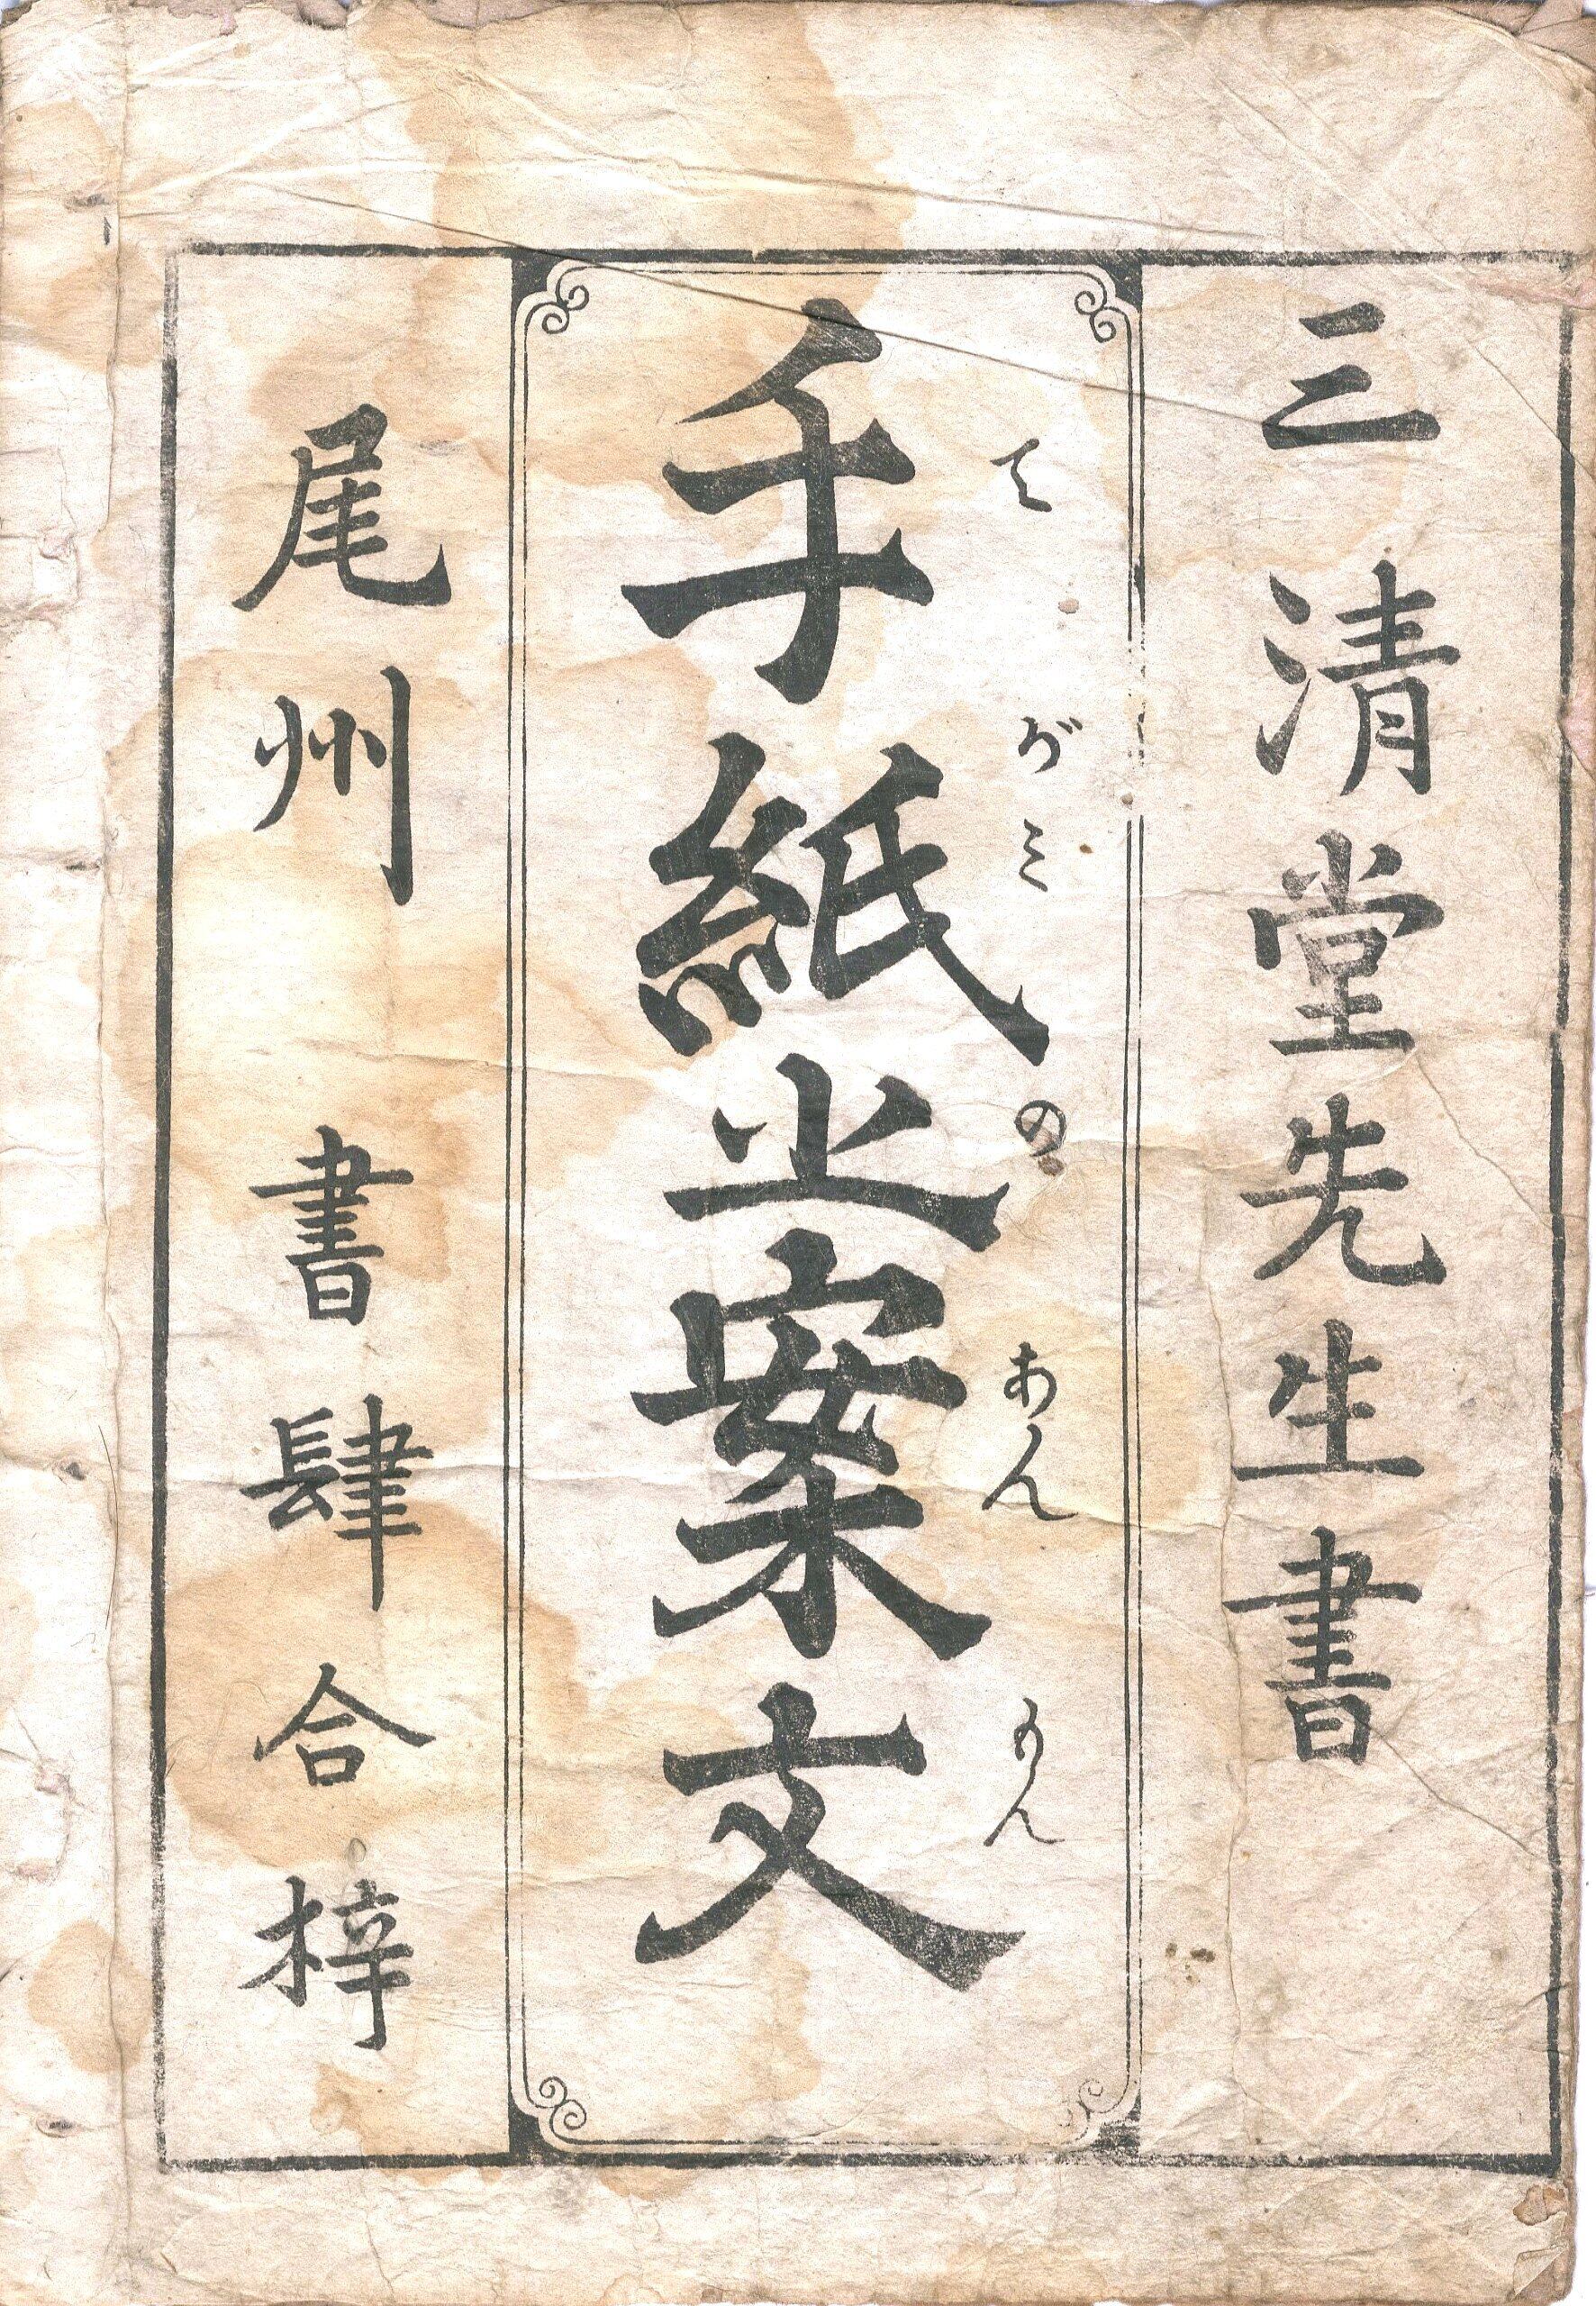 三清堂先生書
てがみのあんもん
手紙之案文
尾州　書肆合梓